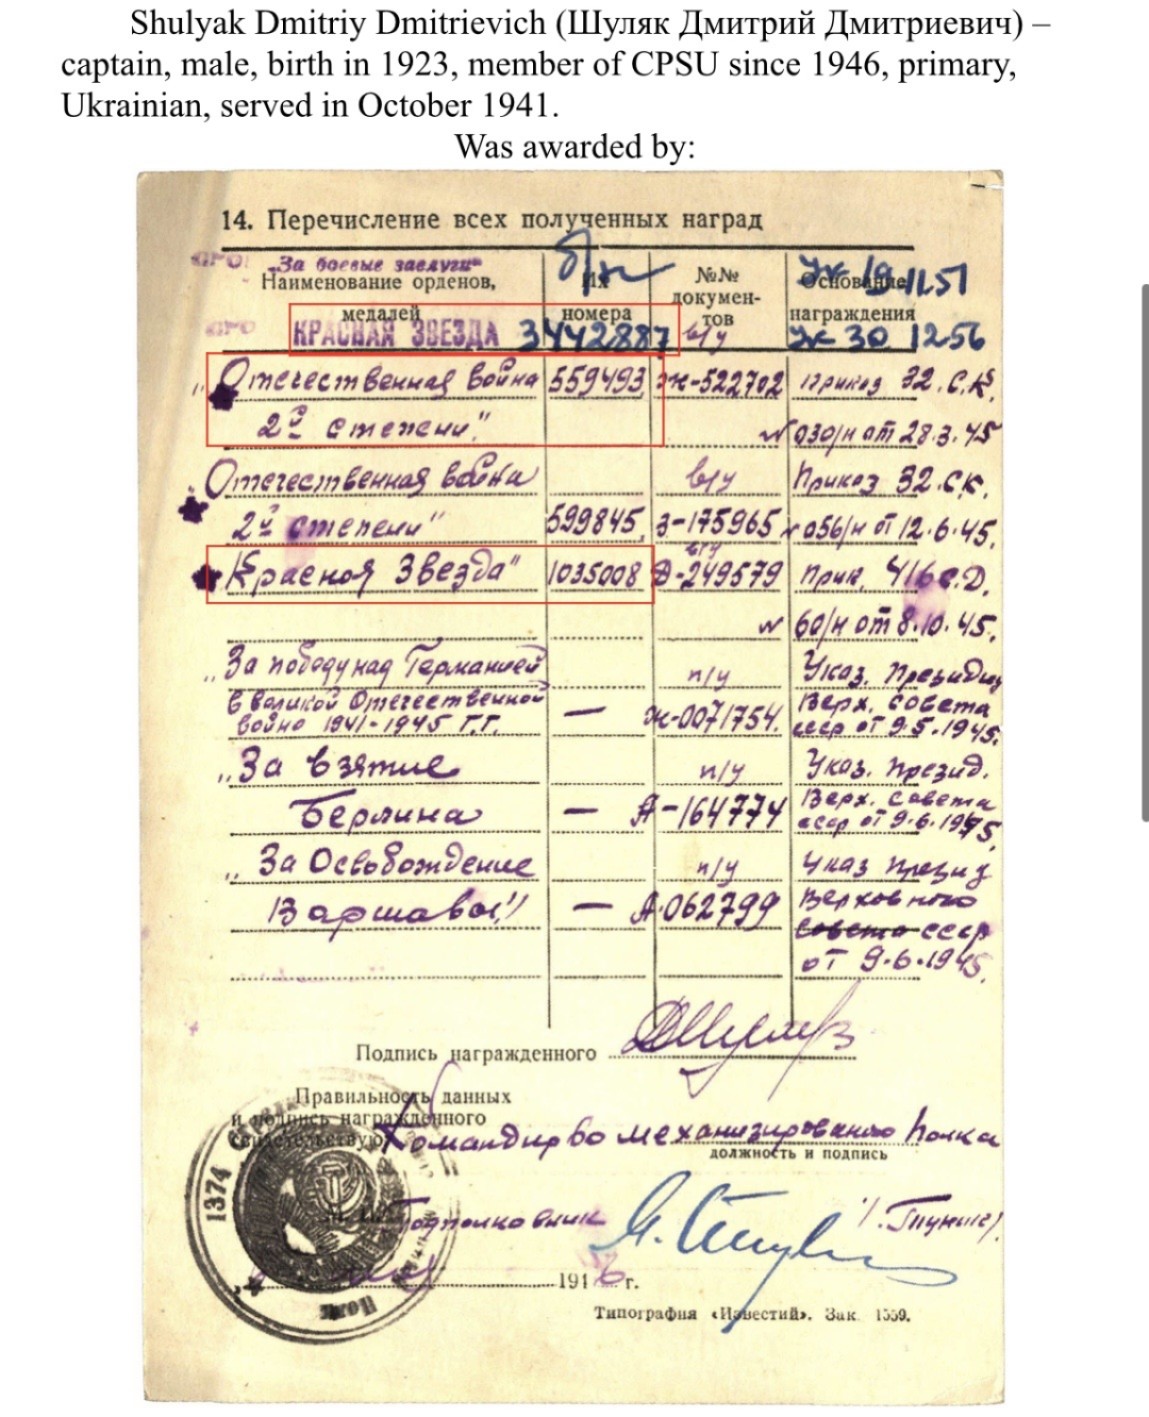 Shulyak Dmitriy Dmitrievich (Шуляк Дмитрий Дмитриевич) –
captain, male, birth in 1923, member of CPSU since 1946, primary,
Ukrainian, served in October 1941.
Was awarded by:
14. Перечисление всех полученных наград
„За боевые заслуги“ б/н Ук 19.11.51
Наименование орденов, медалей
Их номера
№№ документов
Основание награждения
КРАСНАЯ ЗВЕЗДА 3442887 в/у Ук 30 12 56
„Отечественная война 559493 Ж-522702 Приказ 32.С.К.
2й степени" № 030/н от 28.3.45
Отечественная война в/у Приказ 32.СК.
2й степени" 599845 З-175965 № 056/н от 12.6.45.
Красная Звезда" 1035008 в/у Д-249579 Прик. 416 С.Д.
№ 60/н от 8.10.45.
„За победу над Германией п/у Указ. Президиу
в Великой Отечественной Верх. Совета
войне 1941-1945 г.г. — Ж-0071754. ссср от 9.5.1945.
„За взятие п/у Указ. Презид.
Берлина — А-164774 Верх. Совета
ссср от 9.6.1945.
„За Освобождение п/у Указ Презид
Варшавы" — А-062799 Верховного
Совета ссср
от 9.6.1945.
Подпись награжденного
Правильность данных
и подпись награжденного
свидетельствую Командир во механизированого Полка
должность и подпись
М. П. Подполковник
1374
194 г.
Типография «Известий». Зак. 1559.